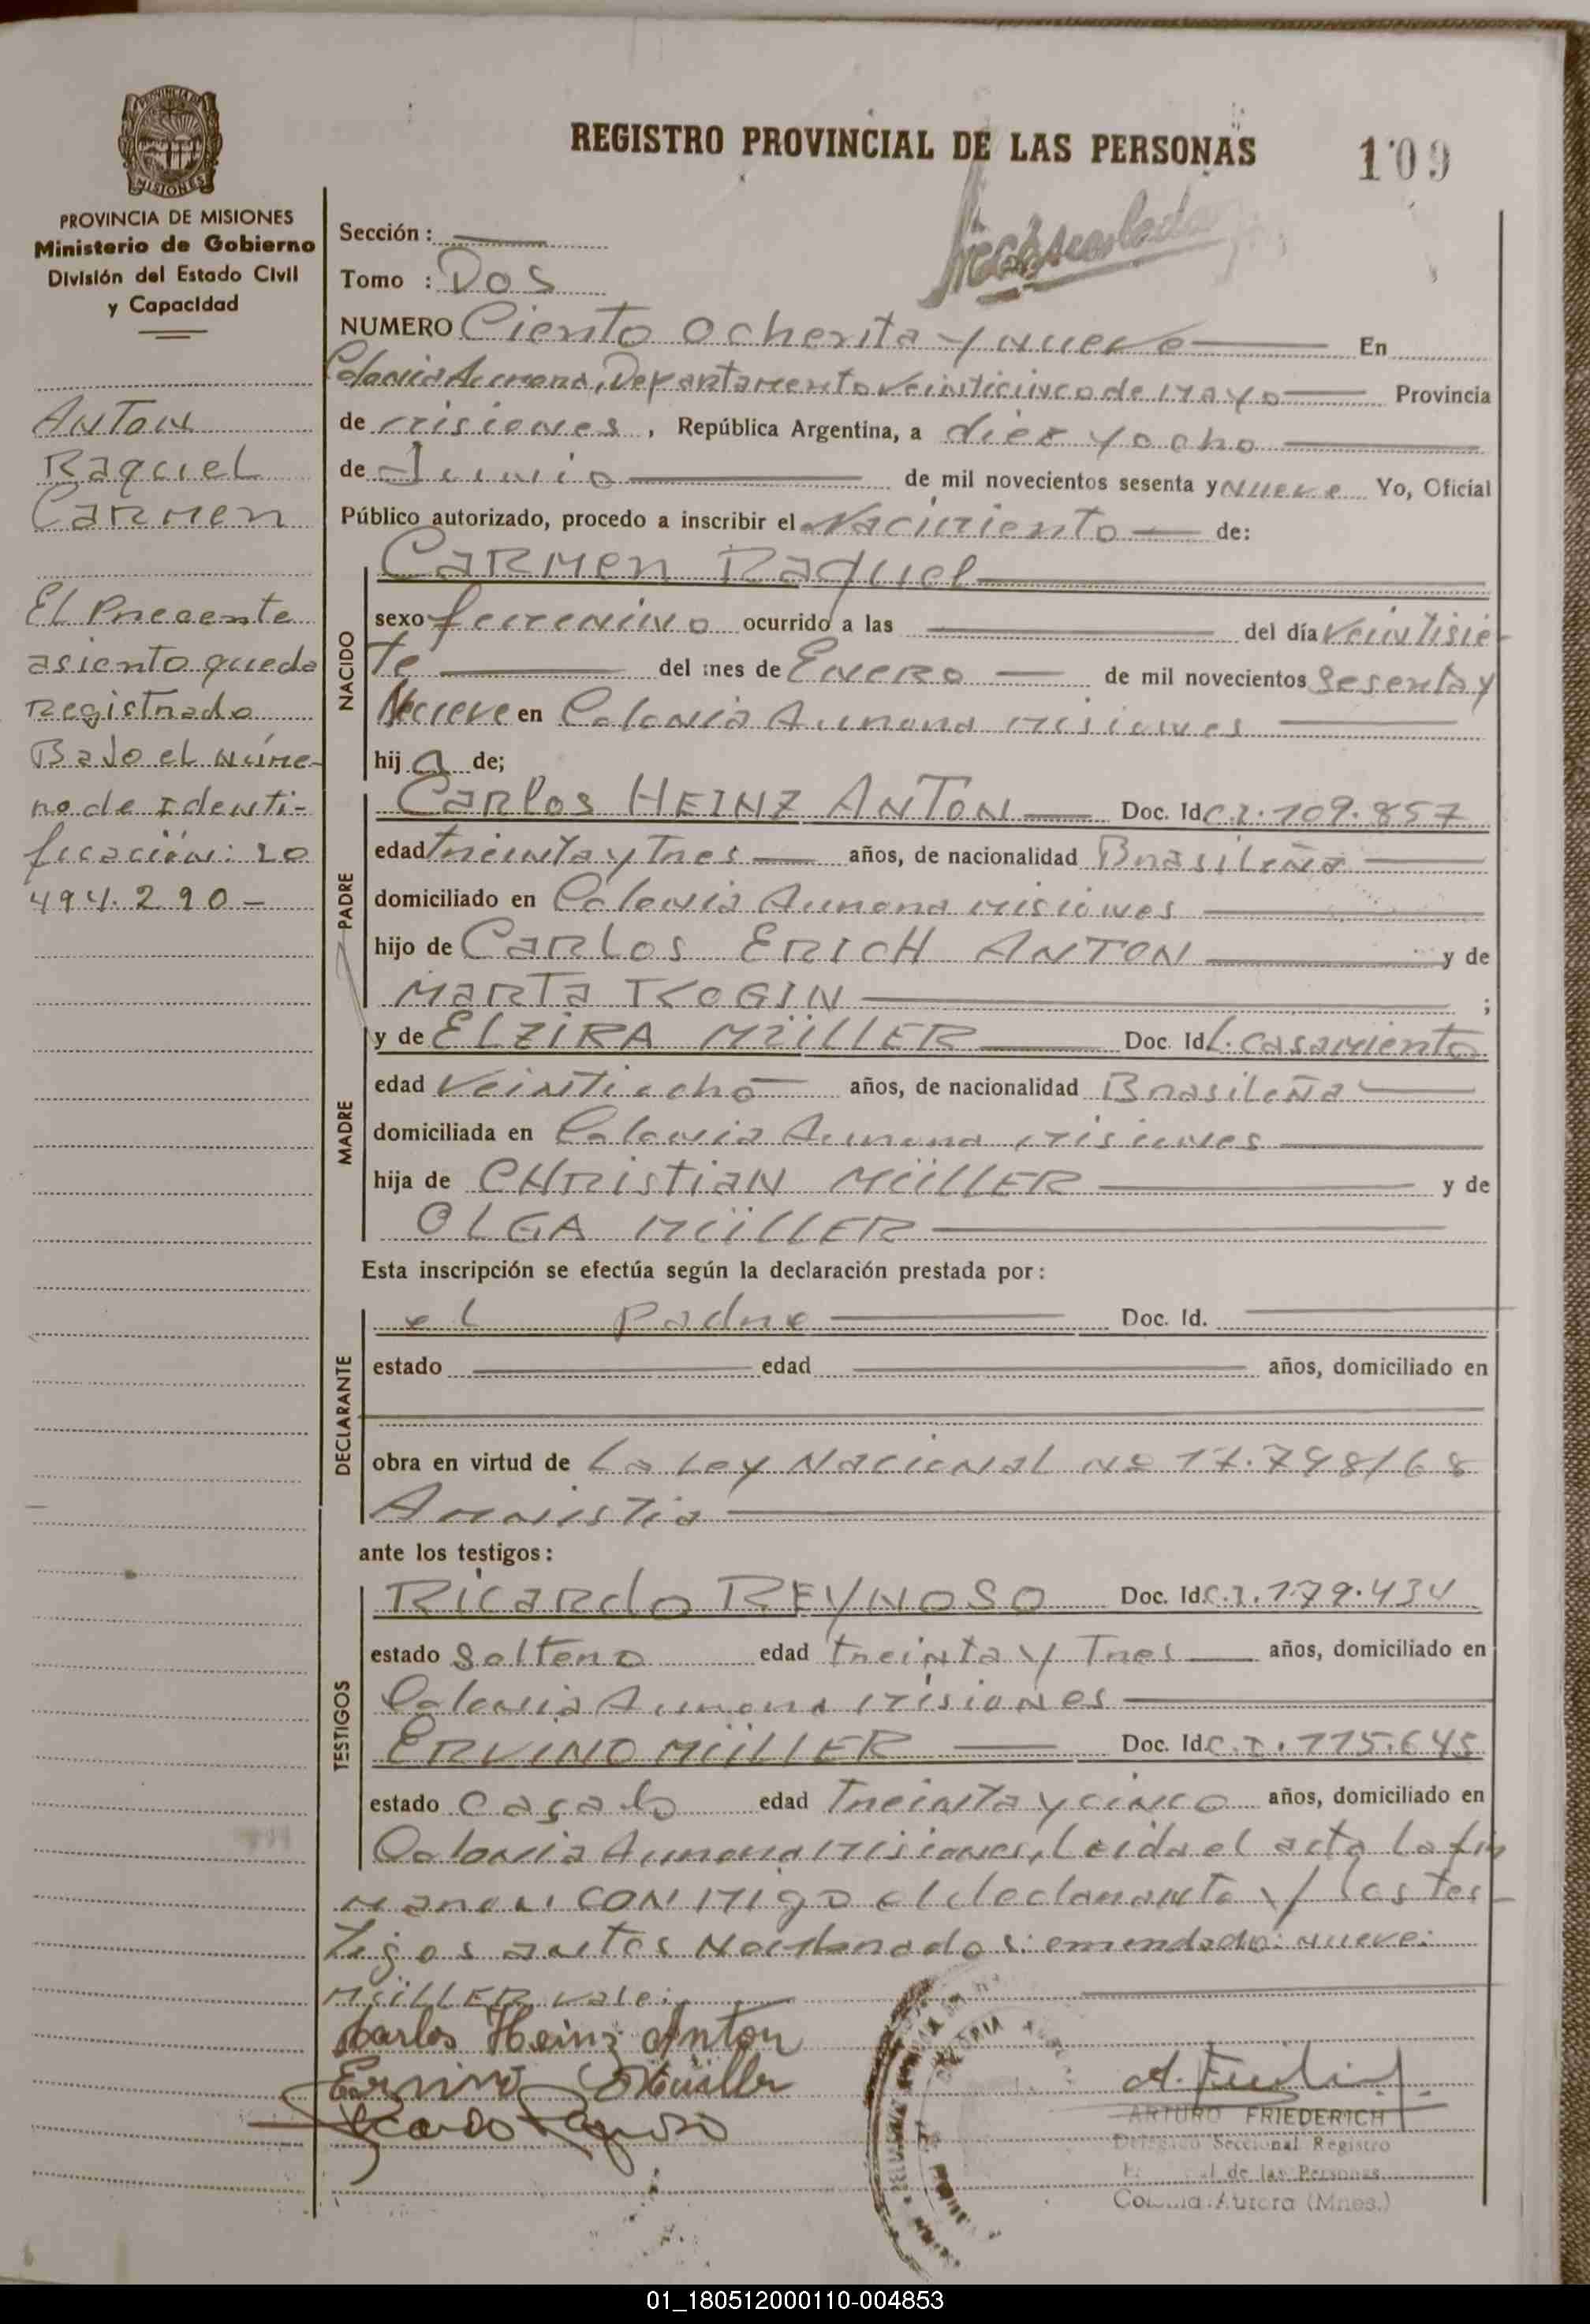 REGISTRO PROVINCIAL DE LAS PERSONAS
109
MISIONES
PROVINCIA DE MISIONES
Ministerio de Gobierno
División del Estado Civil
y Capacidad
Anton
Raquel
Carmen
El Presente
asiento queda
Registrado
Bajo el Núme-
ro de Identi-
ficación: 20
494.290-
Sección:
Tomo : Dos
NUMERO Ciento ochenta y nueve En
Colonia Aurora, Departamento Veinticinco de Mayo Provincia
de Misiones, República Argentina, a diez y ocho
de Junio de mil novecientos sesenta y nueve Yo, Oficial
Público autorizado, procedo a inscribir el Nacimiento de:
NACIDO
Carmen Raquel
sexo femenino ocurrido a las del día Veintisie-
te del mes de Enero de mil novecientos Sesenta y
Nueve en Colonia Aurora Misiones
hija de;
PADRE
Carlos HEINZ ANTON Doc. Id C.I. 109.857
edad treinta y Tres años, de nacionalidad Brasileña
domiciliado en Colonia Aurora Misiones
hijo de Carlos ERICH ANTON y de
MARTA ;
MADRE
y de ELZIRA MÜLLER Doc. Id L. Casamiento
edad Veintiocho años, de nacionalidad Brasileña
domiciliada en Colonia Aurora Misiones
hija de CHRistiaN MÜLLER y de
OLGA MÜLLER
Esta inscripción se efectúa según la declaración prestada por:
DECLARANTE
el Padre Doc. Id.
estado edad años, domiciliado en
obra en virtud de La Ley Nacional Nº 17.798/68
Amnistia
ante los testigos:
TESTIGOS
Ricardo REYNOSO Doc. Id C.I. 179.434
estado Soltero edad treinta y Tres años, domiciliado en
Colonia Aurora Misiones
ERVINO MÜLLER Doc. Id C.I. 115.645
estado Casado edad Treinta y cinco años, domiciliado en
Colonia Aurora Misiones, Leida el acta La fir
maron conmigo el declarante y los tes-
tigos antes Nombrados: emendado: nueve:
MÜLLER vale:
Carlos Heinz Anton
Ervino Müller
Ricardo Reynoso
ARTURO FRIEDERICH
Delegado Seccional Registro
de las Personas
Colonia Aurora (Mnes.)
01_180512000110-004853